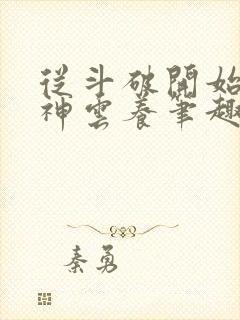 從斗破開始
神雲養筆趣
秦勇